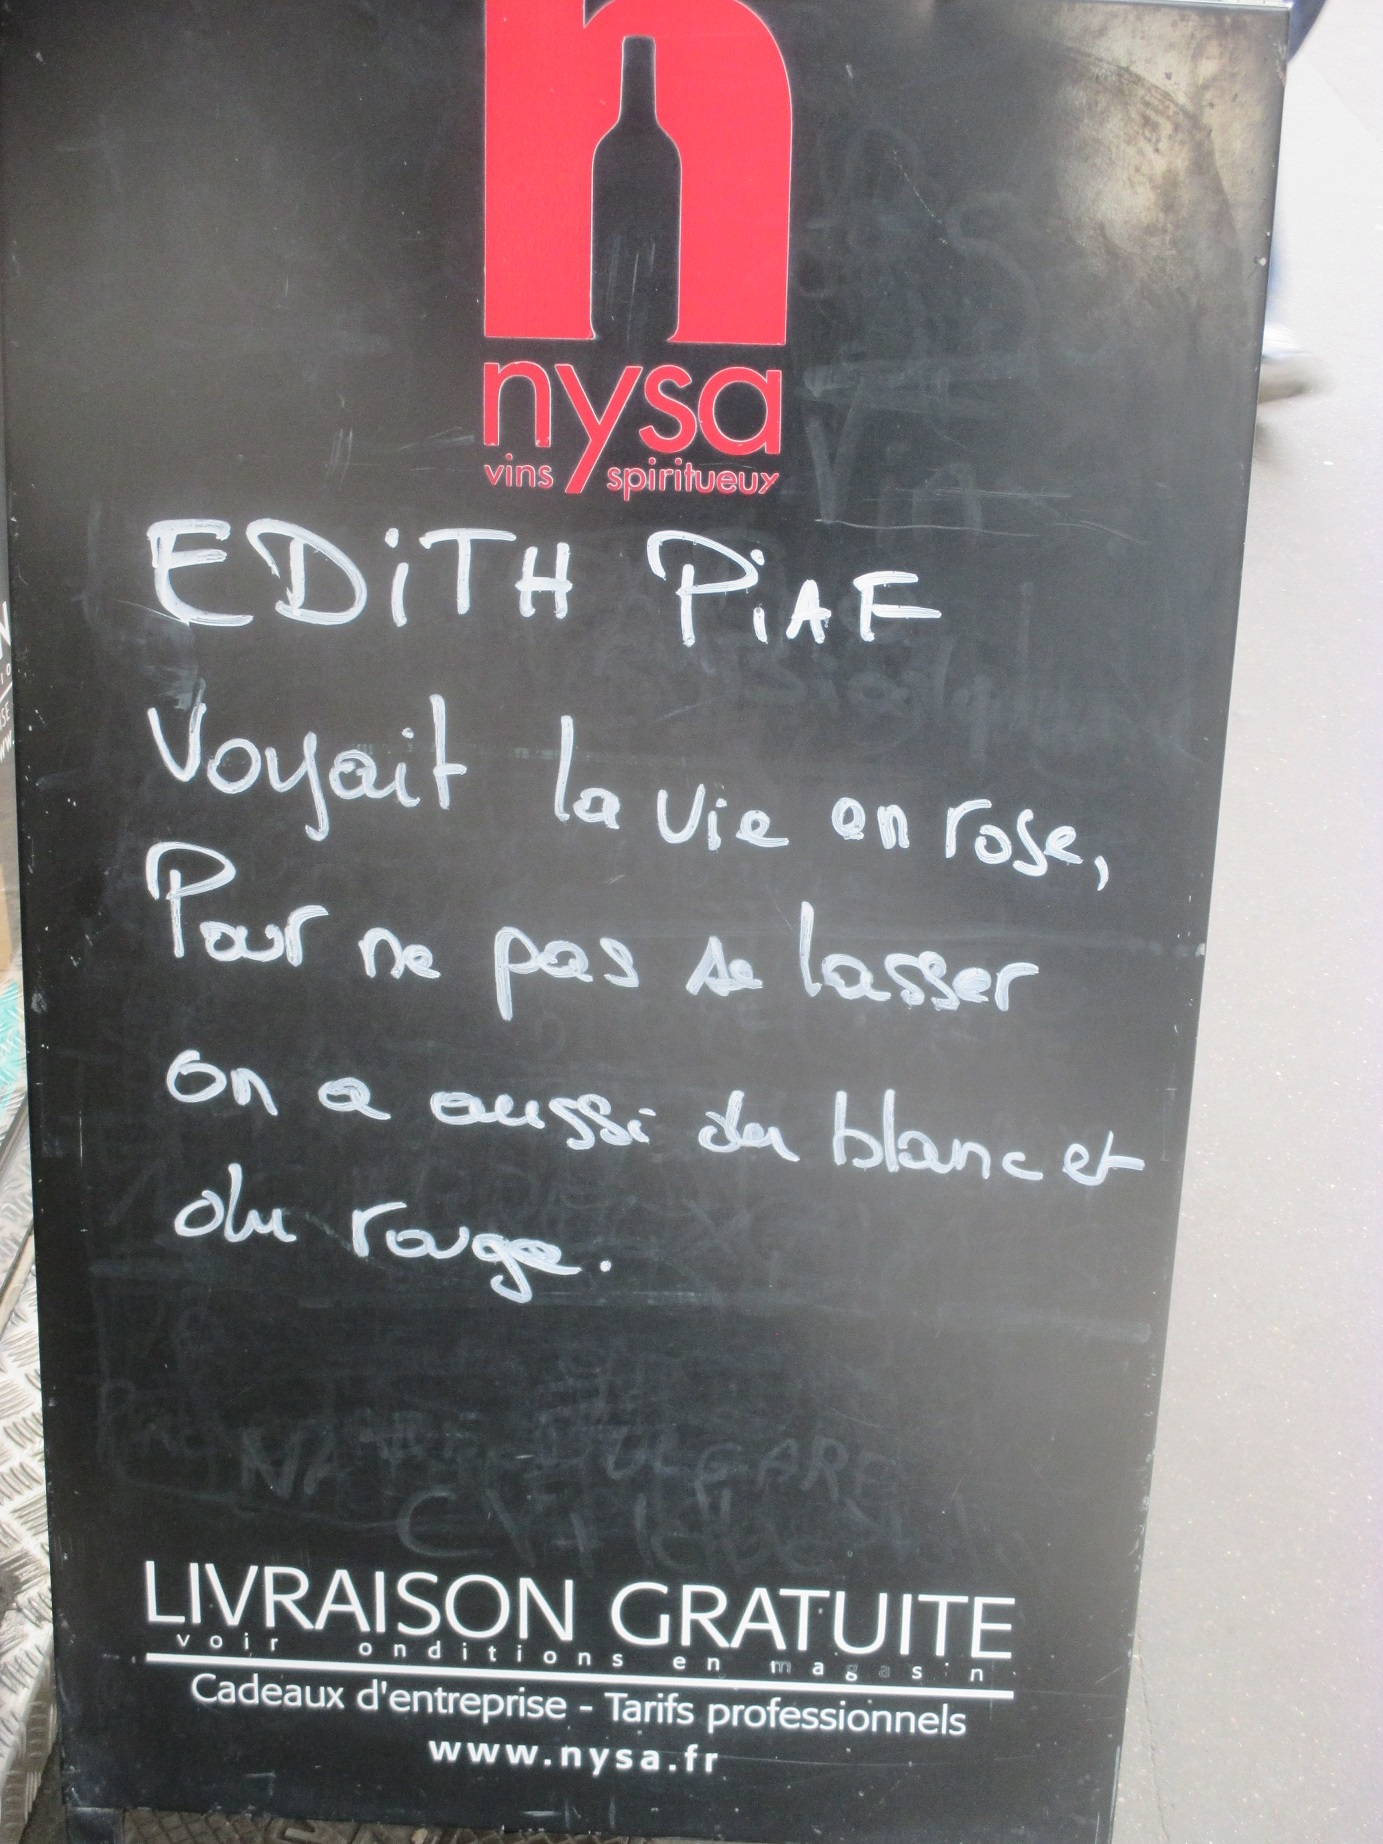 n
nysa
vins spiritueux
EDiTH PiAF
Voyait la vie en rose,
Pour ne pas se lasser
on a aussi du blanc et
du rouge.
LIVRAISON GRATUITE
voir onditions en magasin
Cadeaux d'entreprise - Tarifs professionnels
www.nysa.fr